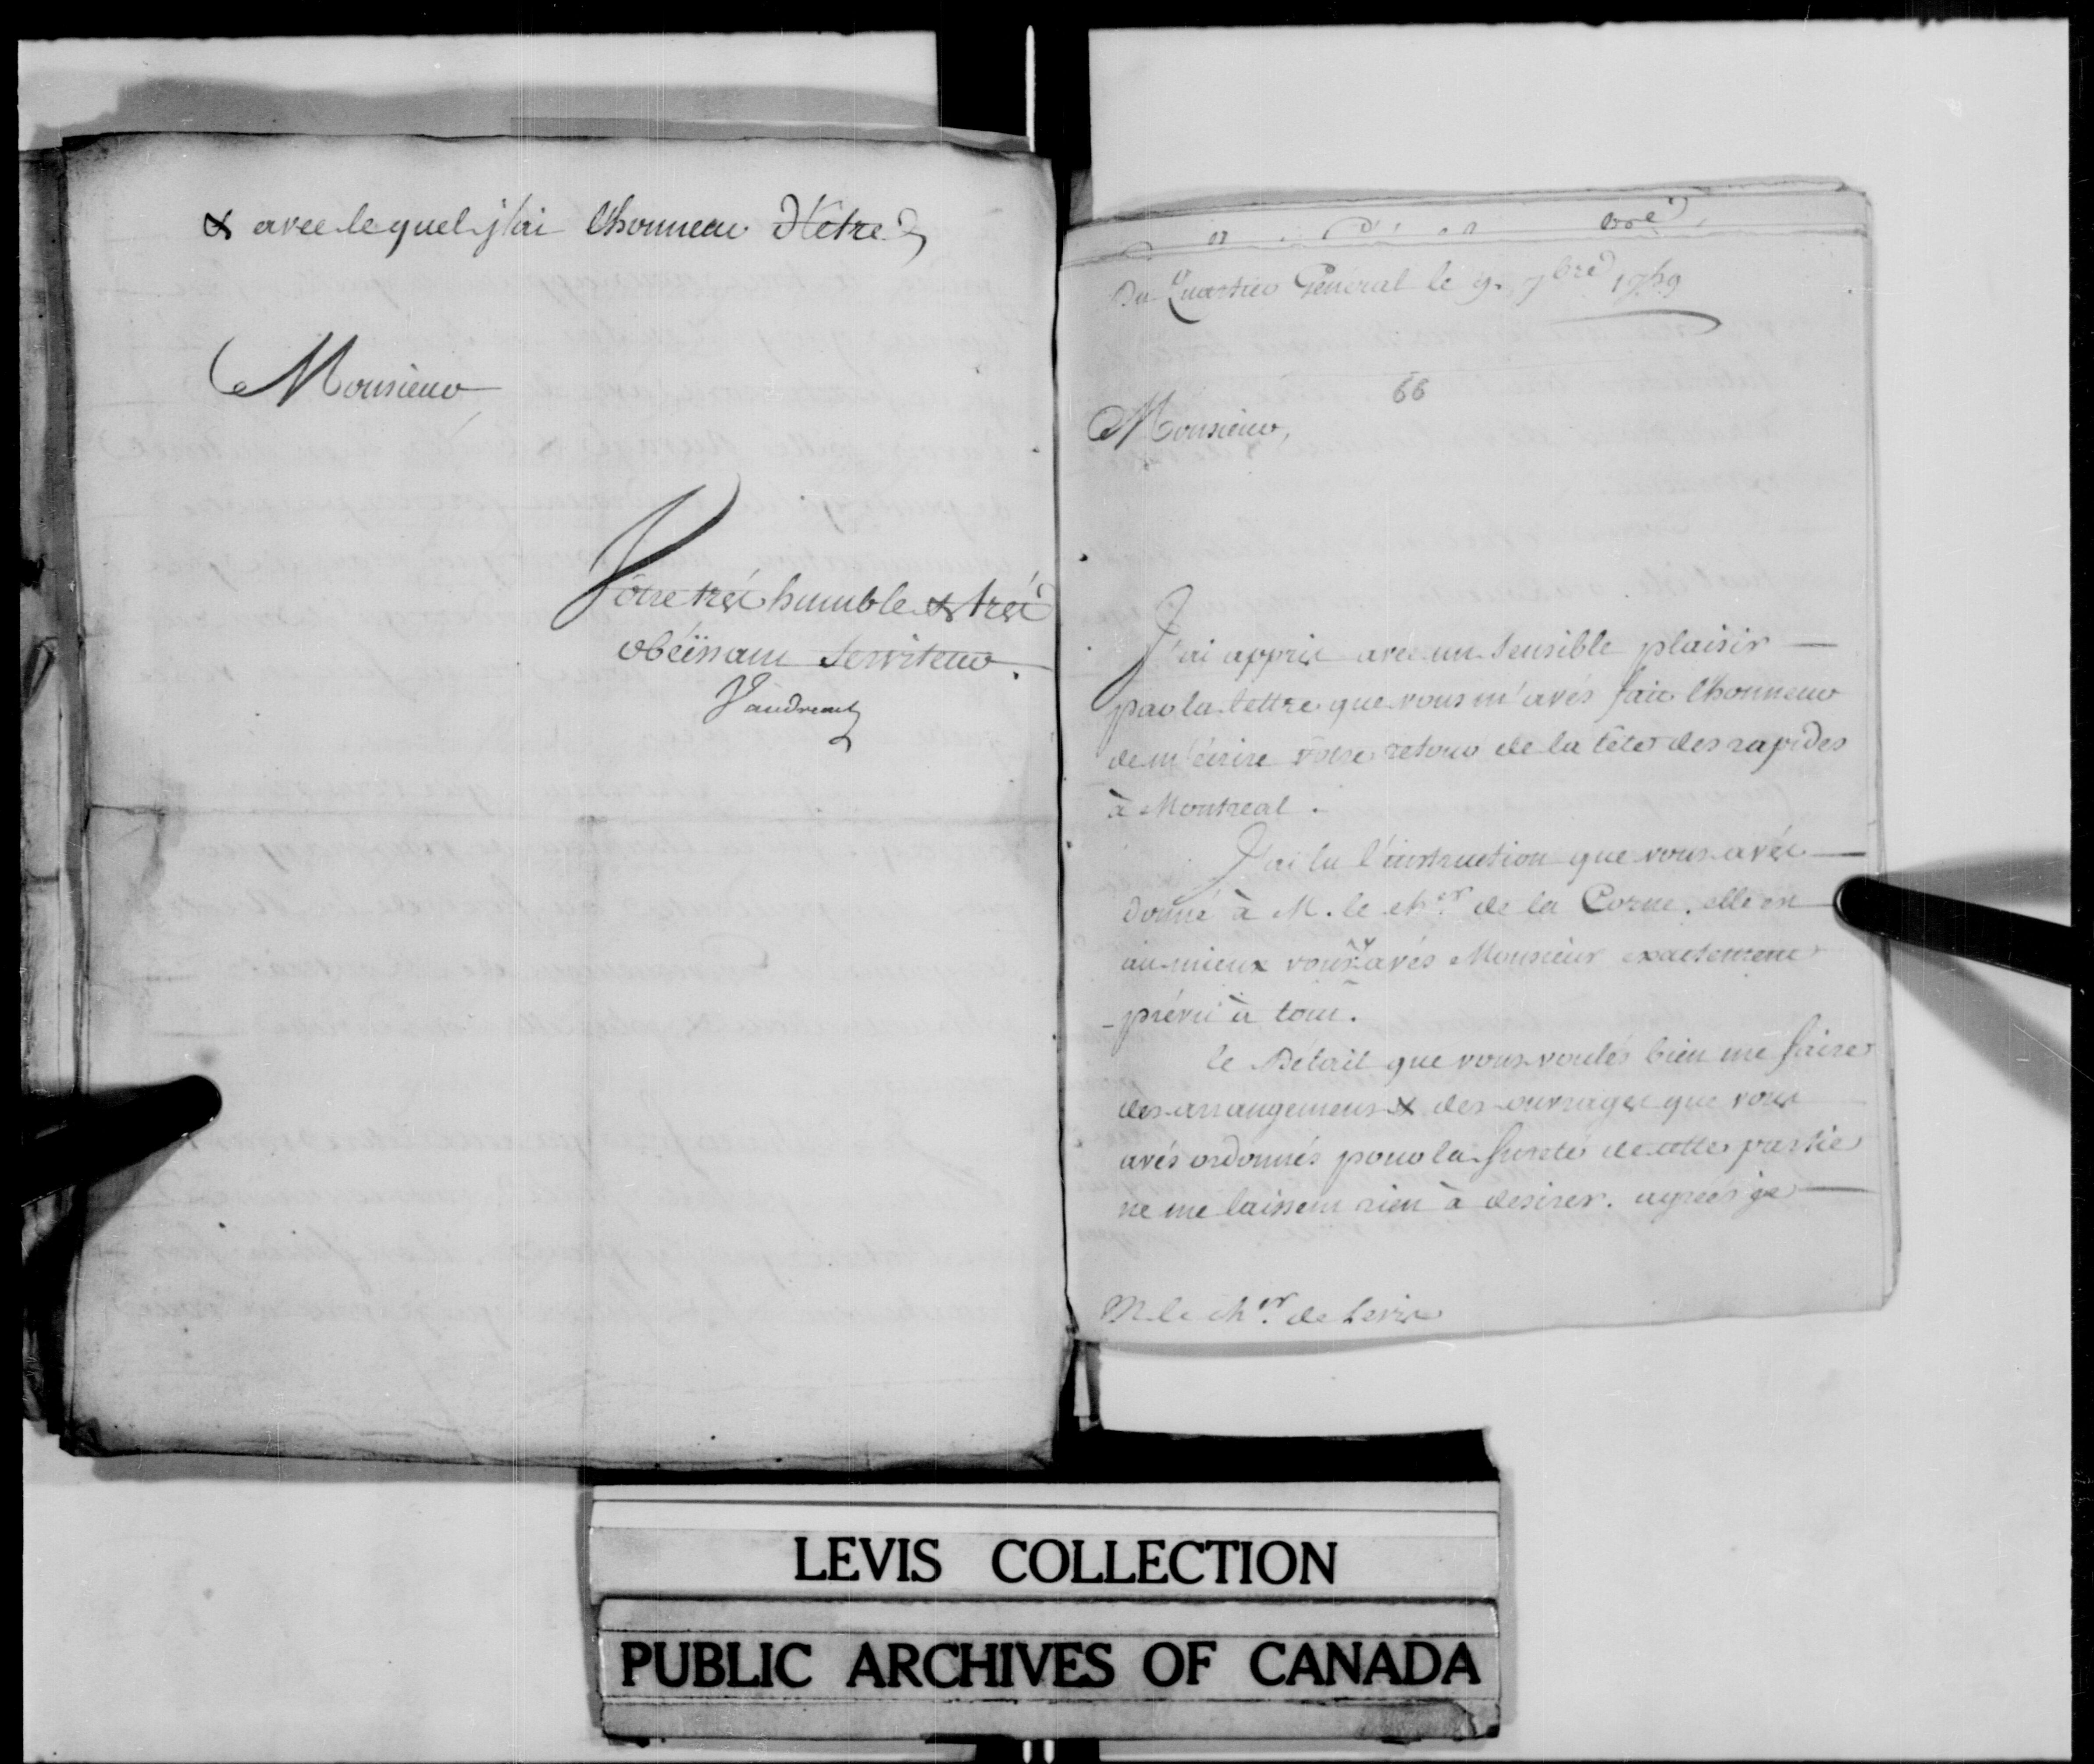 & avec lequel j'ai l'honneur d'être
Monsieur
Vôtre très humble & très
obéissant serviteur.
Vaudreuil
Du Quartier Général le 9. 7bre 1759
66
Monsieur,
J'ai appris avec un sensible plaisir
par la lettre que vous m'avés fait l'honneur
de m'écrire vôtre retour de la tête des rapides
à Montreal.
J'ai lu l'instruction que vous avés
donné à M. le cher de la Corne. elle est
au mieux vous y avés Monsieur exactement
prévu à tout.
le Détail que vous voulés bien me faire
des arrangemens & des ouvrages que vous
avés ordonnés pour la sureté de cette partie
ne me laissent rien à desirer. agréés je
M. le cher de Levis
LEVIS COLLECTION
PUBLIC ARCHIVES OF CANADA